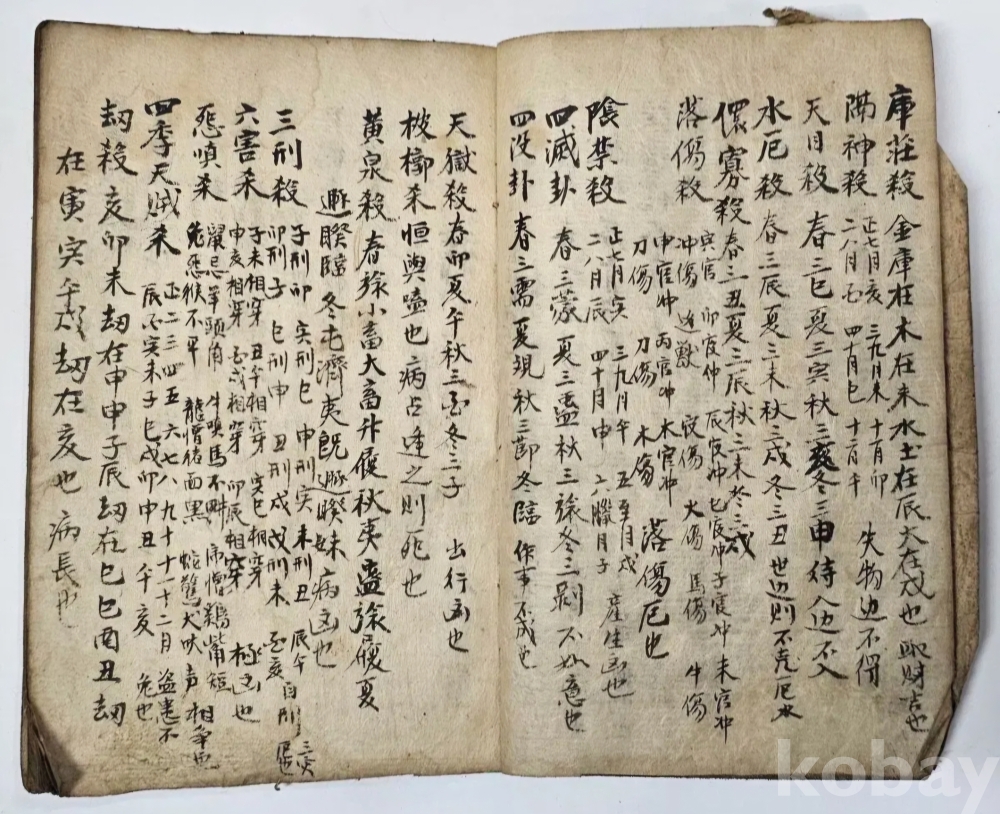 庫莊殺 金庫在木在未水土在辰火在戌也 取財吉也
殺神 正七月亥 二八月 三九月未 四十月巳 十一月卯 十二月午 失物 不得
天目殺 春三巳夏三寅秋三亥冬三申待人 不入
水厄殺 春三辰夏三未秋三戌冬三丑世 則不 厄水
寡殺 春三丑夏三辰秋三未冬三戌
落傷殺 寅官 卯官 辰官冲 巳官冲 子官冲 未官冲
冲傷 火傷 馬傷 牛傷
申官冲 丙官冲 木官冲
刀傷 刀傷 木傷 落傷厄也
陰禁殺 正七月寅 二八月辰 三九月午 四十月申 五至月戌 六臘月子 產生凶也
四滅卦 春三蒙夏三盡秋三 冬三剝不如意也
四没卦 春三需夏觀秋三節冬臨 作事不成也
天獄殺 春卯夏午秋三酉冬三子 出行凶也
棺槨杀 恒與嗑也病占逢之則死也
黃泉殺 春 小畜大畜升履秋夷 履夏
睽臨 冬屯濟夷旣 睽妹 病凶也
三刑殺 子刑卯 卯刑子 寅刑巳 巳刑申 申刑寅 丑刑戌 未刑丑 戌刑未 辰午 酉亥 自刑
六害杀 子未相穿 申亥相穿 丑午相穿 酉戌相穿 寅巳相穿 卯辰相穿 極凶也
怨嗔杀 鼠忌羊頭角 牛嗔馬不畊 虎憎鷄嘴短 兔怨猴不平 龍憎猪面黑 蛇驚犬吠声 相争也
四季天賊杀 正二三四五六七八九十十一十二月 辰酉寅未子巳戌卯申丑午亥 盜
劫殺亥卯未劫在申申子辰劫在巳巳酉丑劫
在寅寅午戌劫在亥也 病長也
kobay